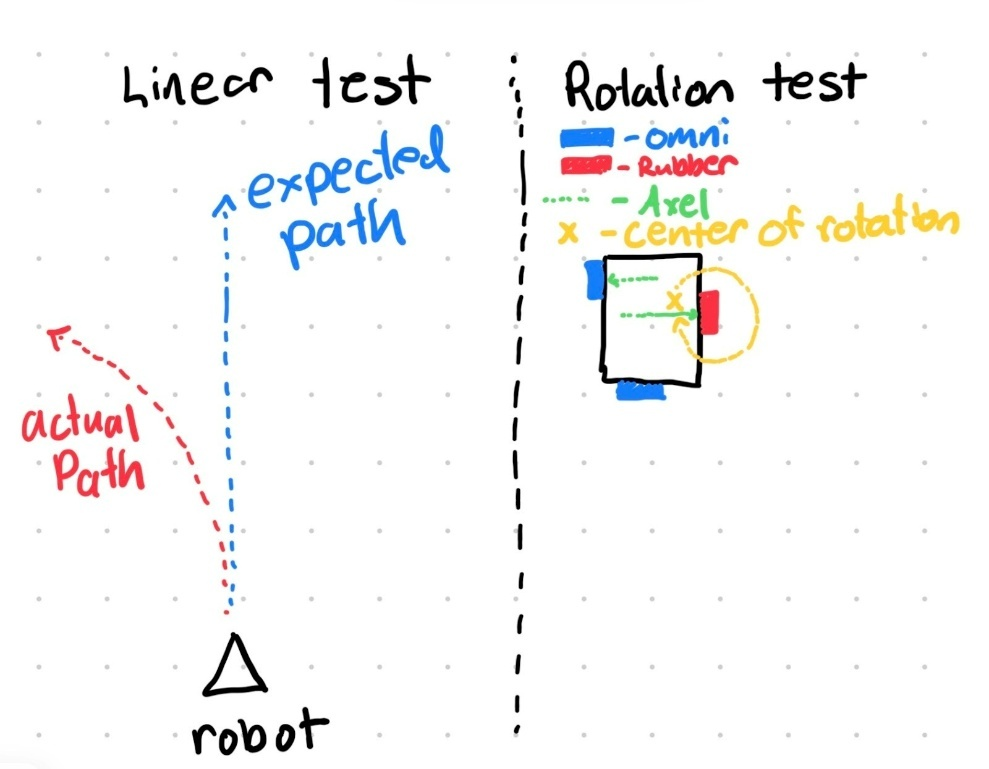 Linear test
expected
path
actual
Path
robot
Rotation test
- omni
- Rubber
- Axel
x - center of rotation
x